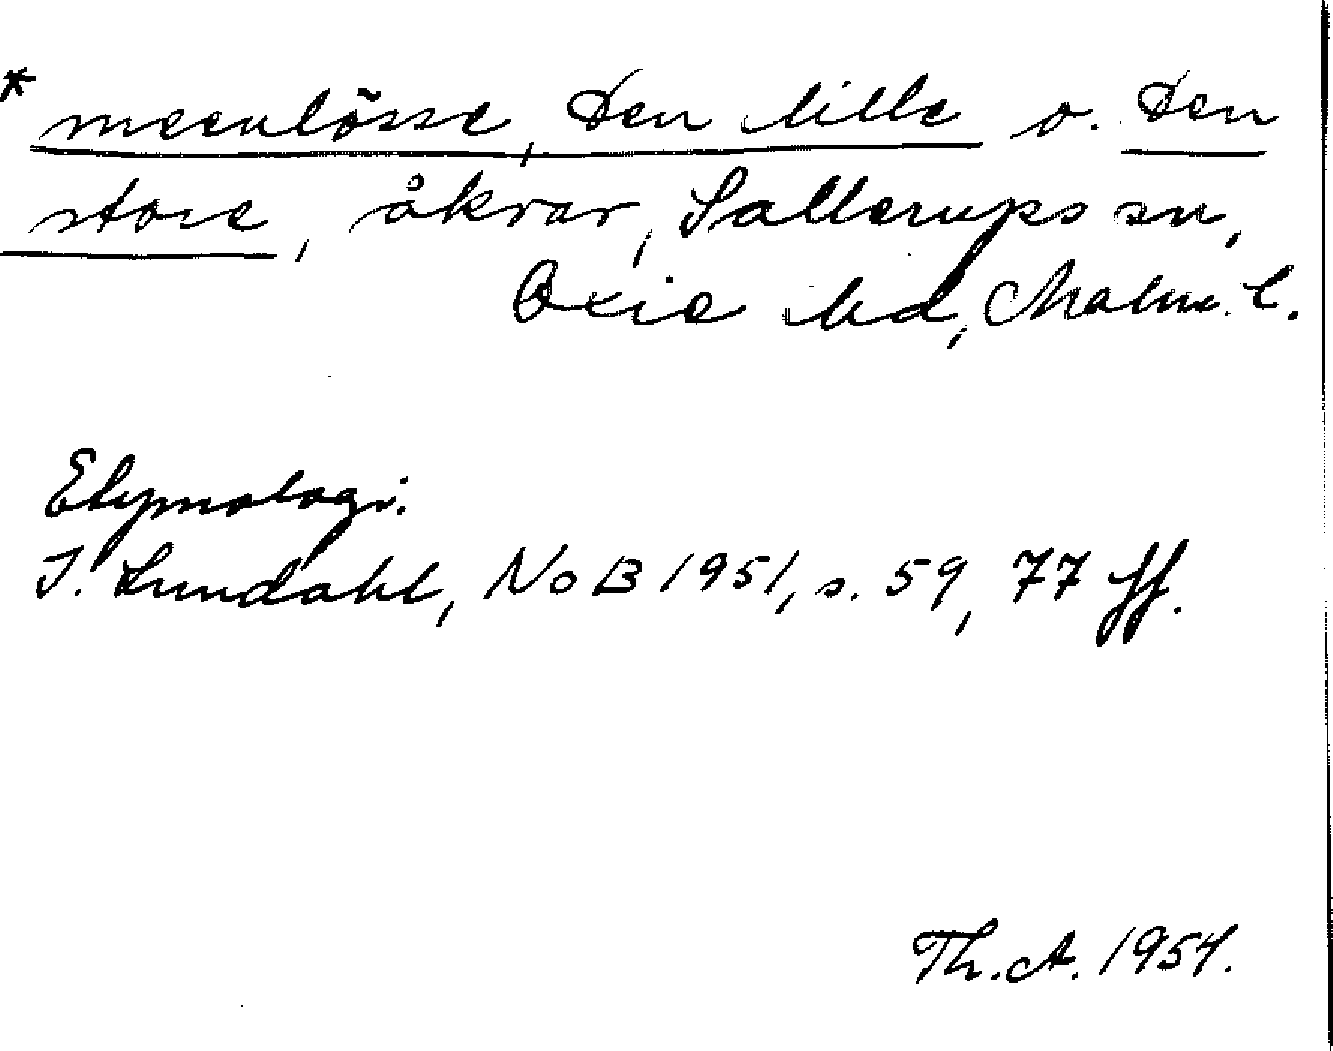 * meenlösse, Den lille o. Den
store, åkrar, Sallerups sn,
Oxie hd, Malm. l.
Etymologi.
I. Lundahl, NoB 1951, s. 59, 77 ff.
Th. A. 1954.